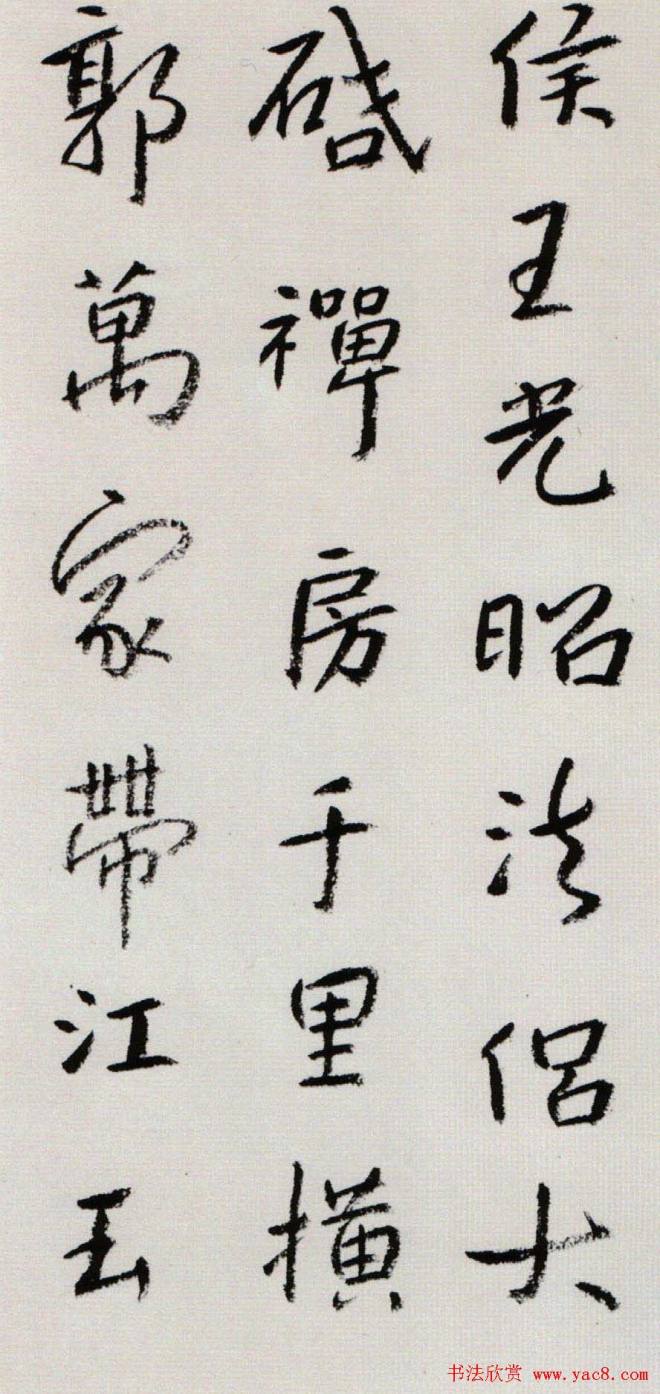 侯王光昭法侶大
啓禪房千里橫
郭萬家帶江玉
书法欣赏 www.yac8.com